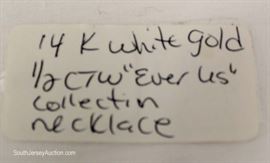 14 K white gold
1/2 CTW "Ever Us"
collectin
necklace
SouthJerseyAuction.com